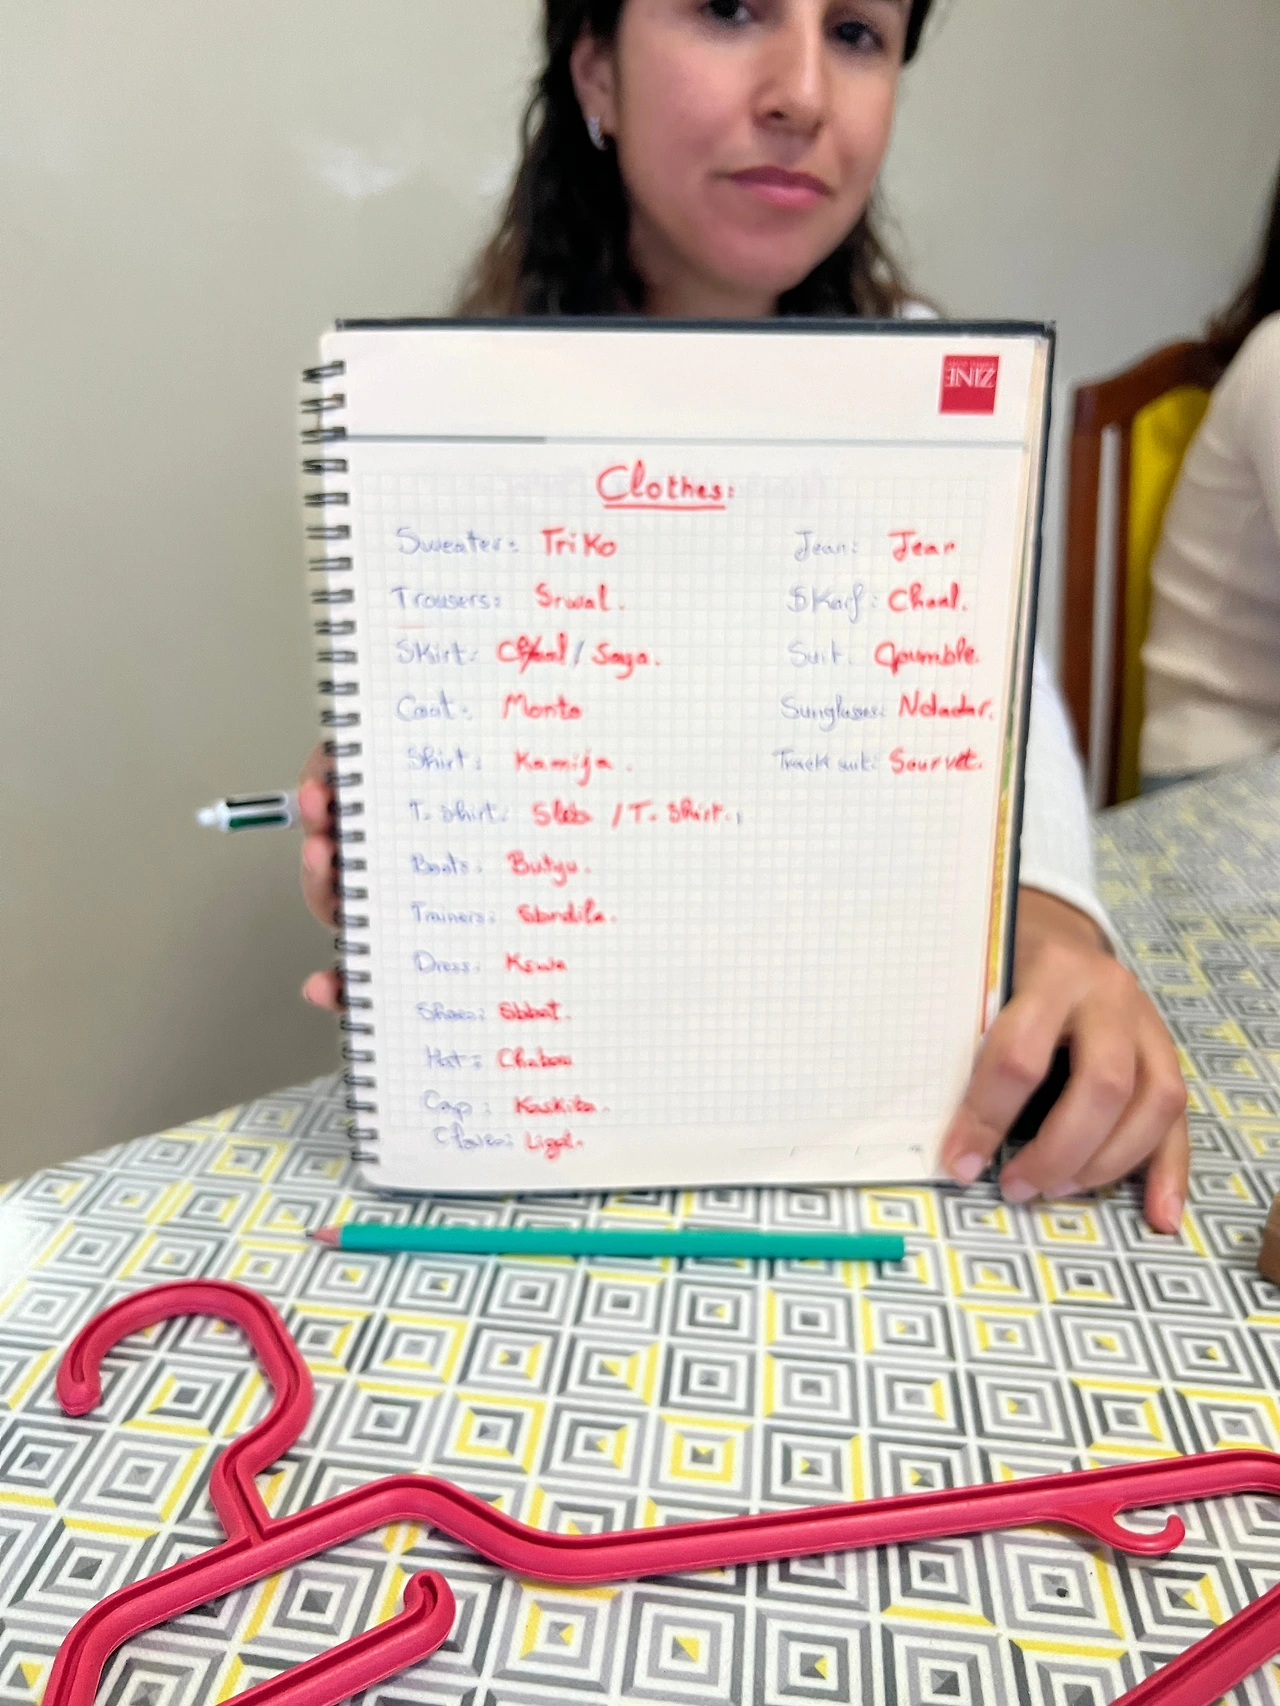 ZINE
Clothes:
Sweater: Triko
Trousers: Srwal.
Skirt: / Saya.
Coat: Monto
Shirt: Kamija.
T. shirt: / T. Shirt.
Boots: Butyu.
Trainers: Sbrdila.
Dress: Kswa
Shoes: Sbbat.
Hat: Chabou
Cap: Kaskita.
Ligal.
Jean: Jean
Skarf: Chaal.
Suit: Qoumble.
Sunglasses: Ndadar.
Track suit: Sourvet.